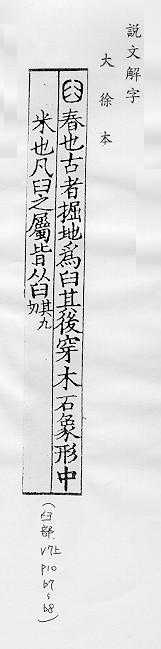 説文解字
大徐本
臼 舂也古者掘地爲臼其後穿木石象形中
米也凡臼之屬皆从臼其九切
(臼部
V7上
P10
b7
s
b8)